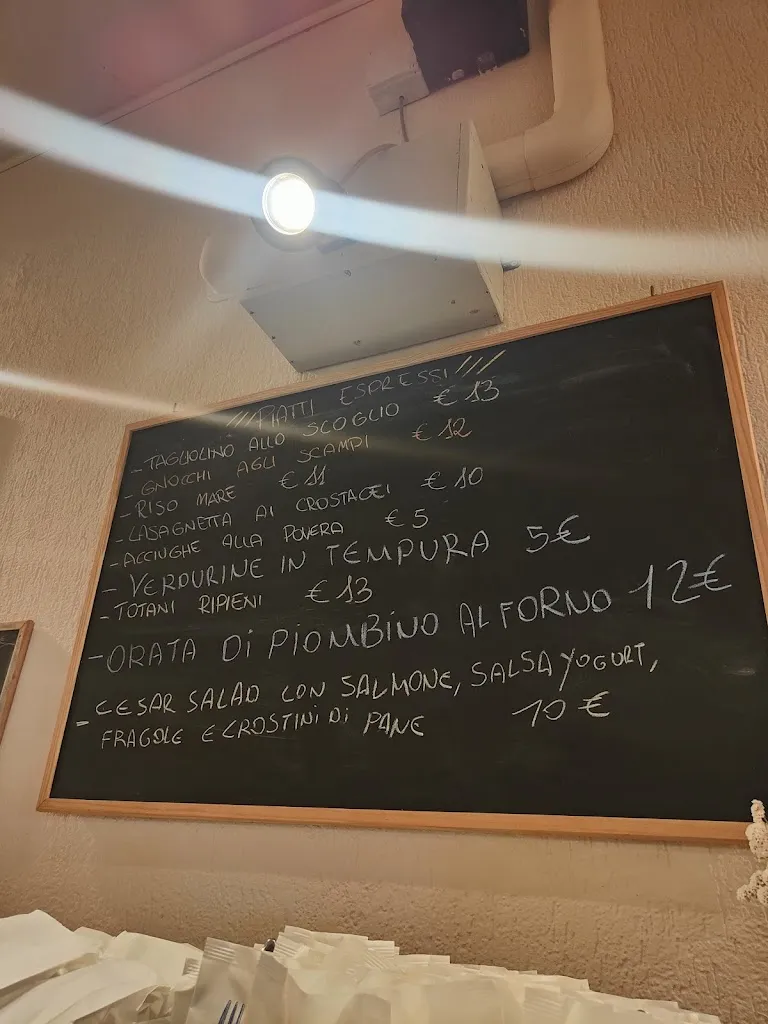 ///PIATTI ESPRESSI///
- TAGLIOLINO ALLO SCOGLIO € 13
- GNOCCHI AGLI SCAMPI € 12
- RISO MARE € 11
- LASAGNETTA AI CROSTACEI € 10
- ACCIUGHE ALLA POVERA € 5
- VERDURINE IN TEMPURA 5€
- TOTANI RIPIENI € 13
- ORATA Di PiOMBiNO AL FORNO 12€
- CESAR SALAD CON SALMONE, SALSA YOGURT,
FRAGOLE E CROSTINI Di PANE 10 €